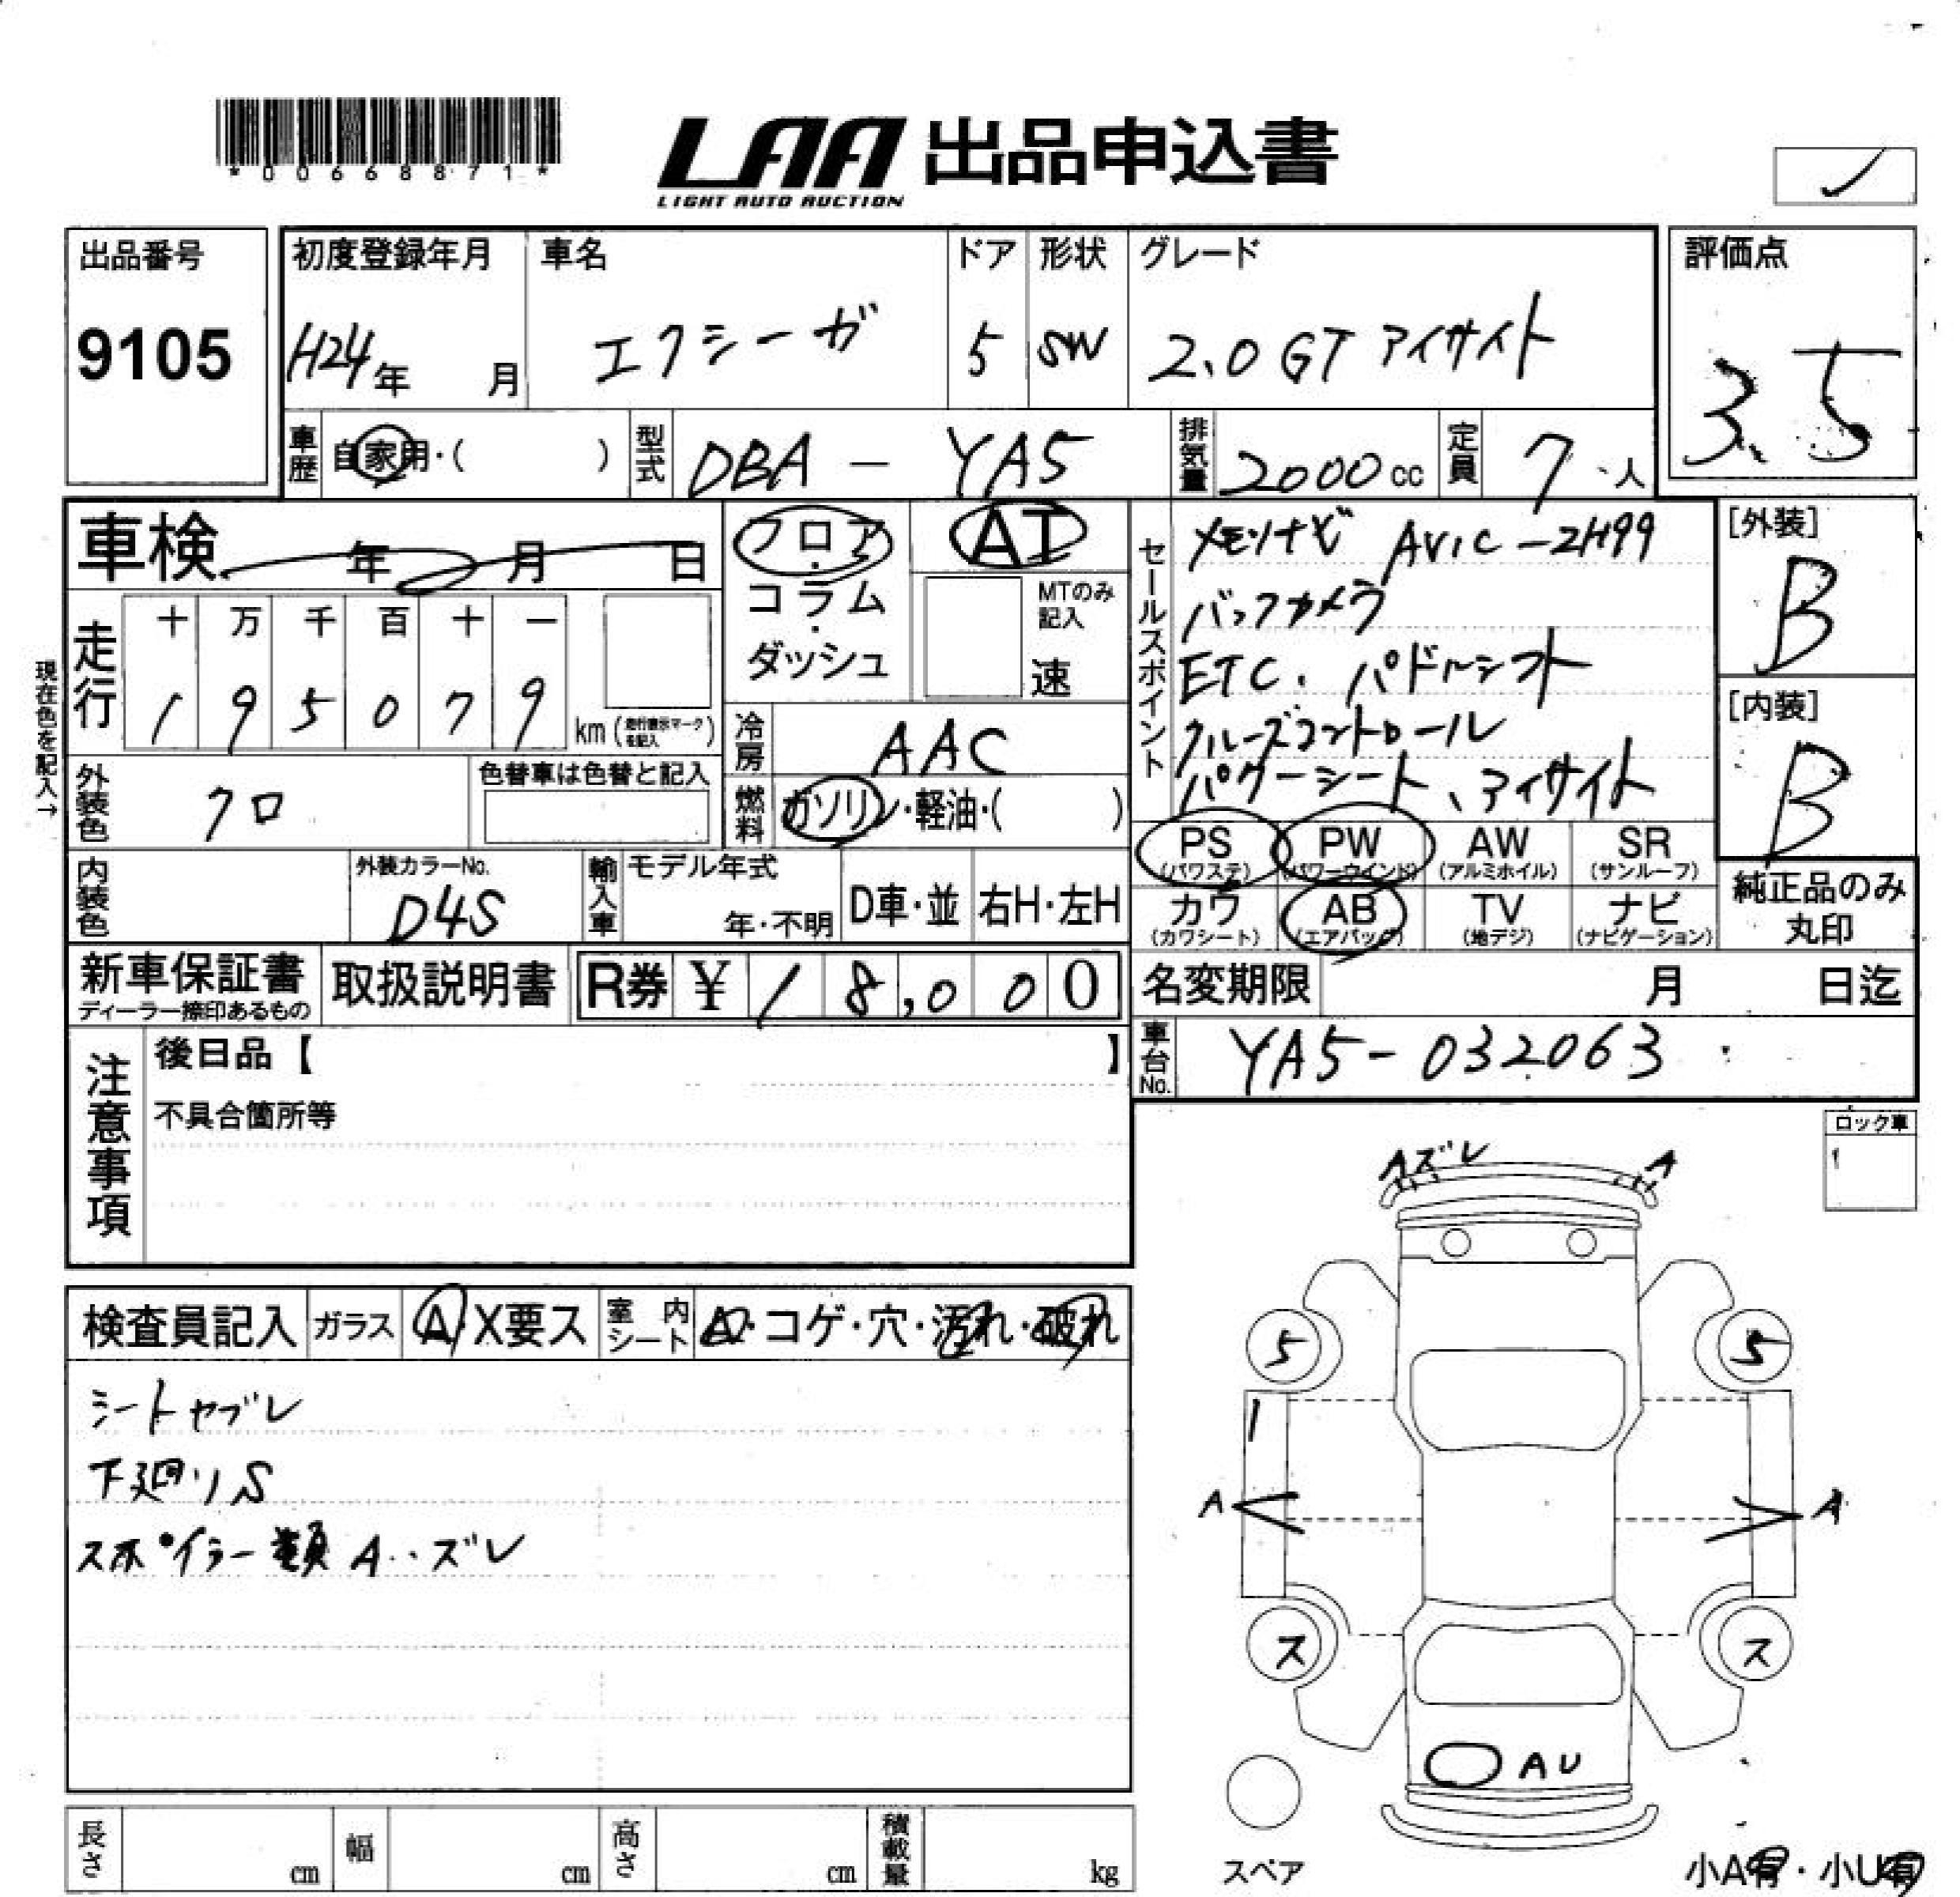 *00668871*
LAA 出品申込書
LIGHT AUTO AUCTION
出品番号
9105
初度登録年月
H24年 月
車名
エクシーガ
ドア
5
形状
SW
グレード
2.0GT アイサイト
評価点
3.5
車歴 自家用・( )
型式 DBA - YA5
排気量 2000cc
定員 7人
車検 年 月 日
フロア・コラム・ダッシュ
AT
MTのみ記入
速
現在色を記入→
走行
十 万 千 百 十 一
1 9 5 0 7 9
km(走行表示マークを記入)
冷房 AAC
外装色 クロ
色替車は色替と記入
燃料 ガソリン・軽油・( )
内装色
外装カラーNo.
D4S
輸入車
モデル年式
年・不明
D車・並
右H・左H
セールスポイント
メモリナビ AVIC-ZH99
バックカメラ
ETC. パドルシフト
クルーズコントロール
パワーシート、アイサイト
[外装]
B
[内装]
B
PS (パワステ)
PW (パワーウインド)
AW (アルミホイル)
SR (サンルーフ)
カワ (カワシート)
AB (エアバック)
TV (地デジ)
ナビ (ナビゲーション)
純正品のみ丸印
新車保証書
ディーラー捺印あるもの
取扱説明書
R券 ¥ 18,000
名変期限 月 日迄
車台No. YA5-032063
注意事項
後日品【 】
不具合箇所等
ロック車
Aズレ A
検査員記入
ガラス A・X要ス
室内シート A・コゲ・穴・汚れ・破れ
シートヤブレ
下廻りS
スポイラー類 A・・ズレ
5 5
A A
ス ス
AU
スペア
小A有・小U有
長さ cm
幅 cm
高さ cm
積載量 kg